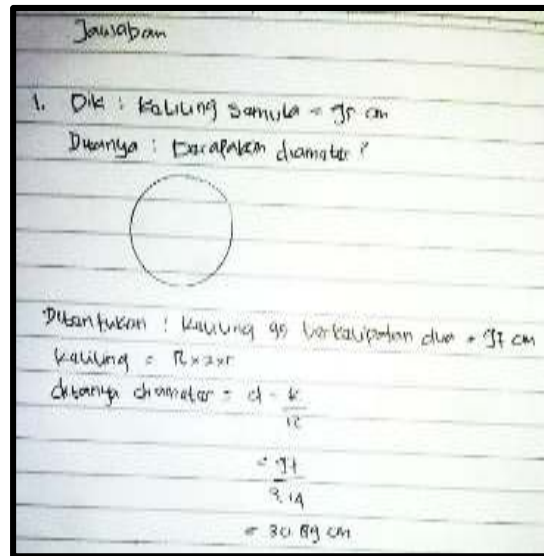 Jawaban
1. Dik : Keliling semula = 95 cm
Ditanya : berapakah diameter ?
Ditentukan : keliling berkelipatan dua = 97 cm
keliling = π x 2 x r
ditanya diameter = d = k
π
= 97
3,14
= 30.89 cm